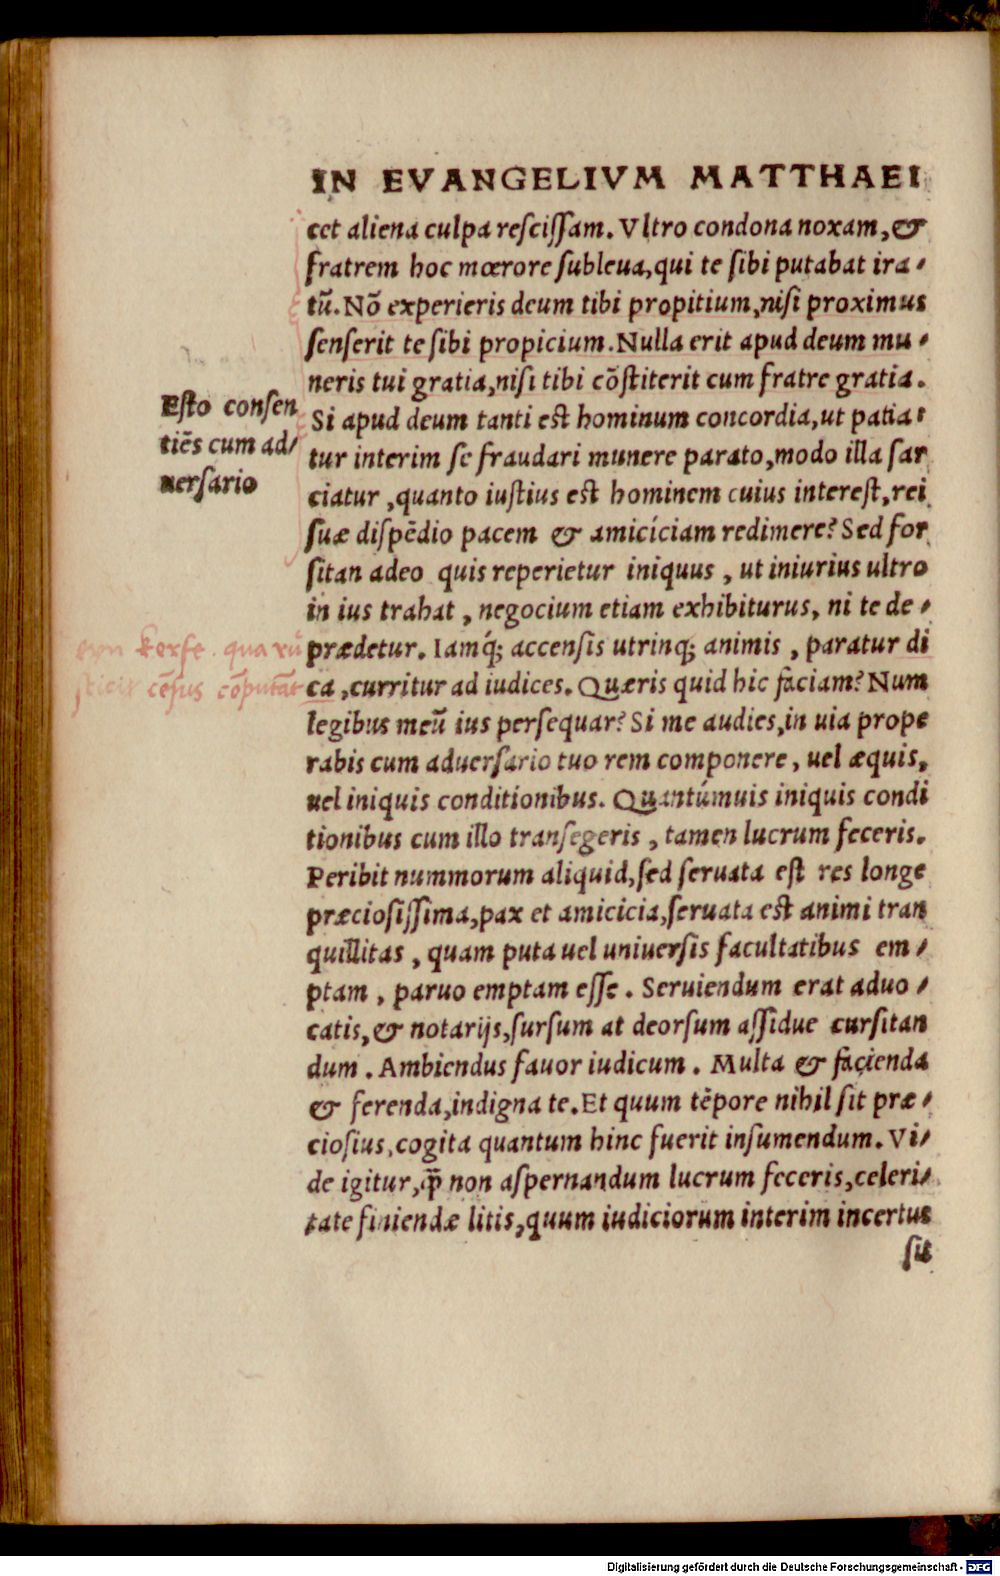 IN EVANGELIVM MATTHAEI
cet aliena culpa resciſſam. Vltro condona noxam, &
fratrem hoc mœrore ſubleua, qui te ſibi putabat ira⸗
tū. Nō experieris deum tibi propitium, niſi proximus
ſenſerit te ſibi propicium. Nulla erit apud deum mu⸗
neris tui gratia, niſi tibi cōſtiterit cum fratre gratia.
Eſto conſen
tiēs cum ad⸗
uerſario
Si apud deum tanti eſt hominum concordia, ut patia⸗
tur interim ſe fraudari munere parato, modo illa ſar
ciatur, quanto iuſtius eſt hominem cuius intereſt, rei
ſuæ diſpēdio pacem & amicíciam redimere? Sed for
ſitan adeo quis reperietur iniquus, ut iniurius ultro
in ius trahat, negocium etiam exhibiturus, ni te de⸗
prædetur. Iamq́; accenſis utrinq; animis, paratur di
ca, curritur ad iudices. Quæris quid hic faciam? Num
kerfe. qua rū
ſticit cēſus cōputāt
legibus meū ius perſequar? Si me audies, in uia prope
rabis cum aduerſario tuo rem componere, uel æquis,
uel iniquis conditionibus. Quantúmuis iniquis condi
tionibus cum illo tranſegeris, tamen lucrum feceris.
Peribit nummorum aliquid, ſed ſeruata eſt res longe
præcioſiſſima, pax et amicicia, ſeruata eſt animi tran
quillitas, quam puta uel uniuerſis facultatibus em⸗
ptam, paruo emptam eſſe. Seruiendum erat aduo⸗
catis, & notarijs, ſurſum at deorſum aſſidue curſitan
dum. Ambiendus fauor iudicum. Multa & facienda
& ferenda, indigna te. Et quum tēpore nihil ſit præ⸗
cioſius, cogita quantum hinc fuerit inſumendum. Vi⸗
de igitur, q̄̃ non aſpernandum lucrum feceris, celeri⸗
tate finiendæ litis, quum iudiciorum interim incertus
ſit
Digitalisierung gefördert durch die Deutsche Forschungsgemeinschaft - DFG